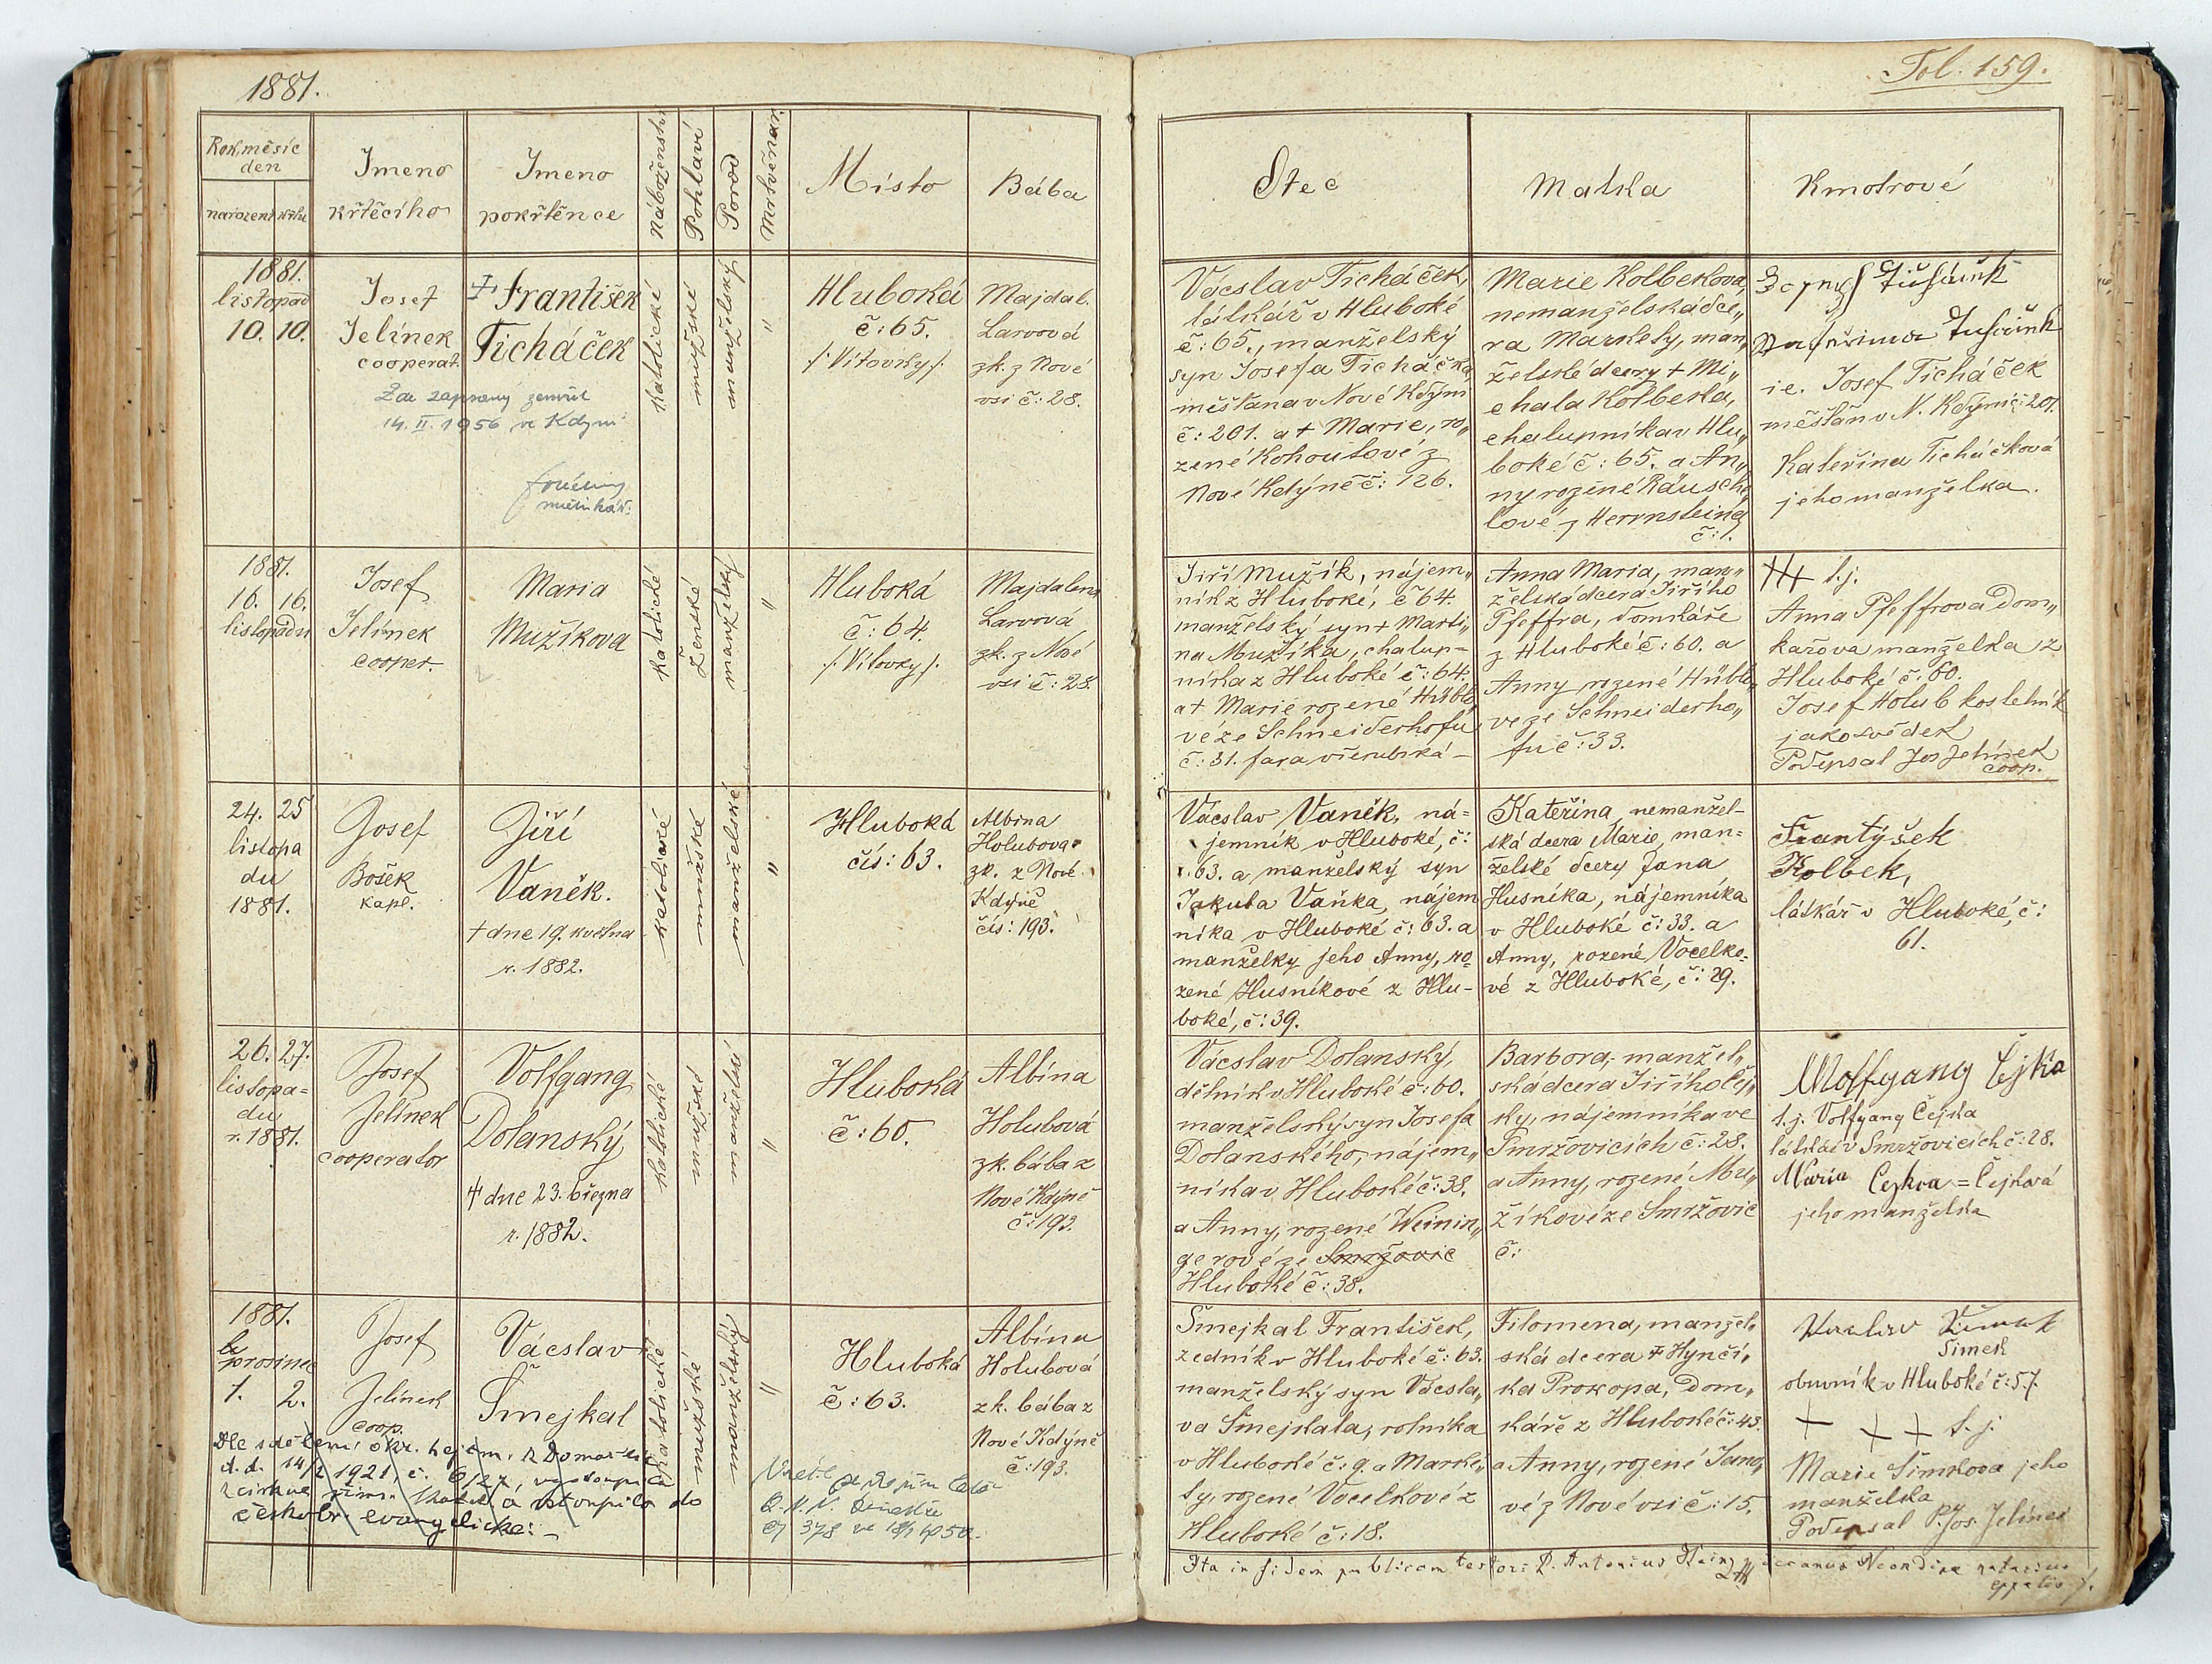 1881.
Fol. 159.
Rok, měsíc
den
narození
křtu
Jmeno
křtěcího
Jmeno
pokřtěnce
Náboženství
Pohlaví
Porod
Mrtvěnar.
Místo
Bába
Otec
Matka
Kmotrové
1881.
listopad
10. 10.
Josef
Jelínek
cooperat.
‡ František
Ticháček
Zde zapsaný zemřel
14. II. 1956 ve Kdyni
katolické
mužské
manželský
"
Hluboká
č: 65.
/: Vítovky /:
Majdal.
Larvová
zk. z Nové
vsi č: 28.
Vácslav Ticháček,
látkář v Hluboké
č: 65., manželský
syn Josefa Ticháčka,
měšťana v Nové Kdým
č: 201. a + Marie, ro„
zené Kohoutové z
Nové Kdýně č: 126.
Marie Kolbekova,
nemanželská dce„
ra Markety, man„
želské dcery + Mi„
chala Kolbeka,
chalupníka v Hlu„
boké č: 65. a An„
ny rozené Räusche
lové z Herrnsteina
č: 1.
i.e. Josef Ticháček
měšťan v N. Kdyni č: 201.
Kateřina Ticháčková
jeho manželka.
1881.
16. 16.
listopadu
Josef
Jelínek
cooper.
Maria
Mužíkova
katolické
ženské
manželský
"
Hluboká
č: 64.
/: Vítovky /:
Majdalena
Larvová
zk. z Nové
vsi č: 28.
Jiří Mužík, nájem„
ník z Hluboké, č 64.
manželský syn + Marti„
na Mužíka, chalup=
níka z Hluboké č: 64.
a + Marie rozené Hüblo
vé ze Schneiderhofu
č: 31. fara všerubská –
Anna Maria, man„
želská dcera Jiřího
Pfeffra, domkáře
z Hluboké č: 60. a
Anny rozené Hüblo„
ve ze Schneiderho„
fu č: 33.
+++ t.j.
Anna Pfeffrova dom„
kařova manželka z
Hluboké č. 60.
Josef Holub kostelník
jako svědek
Podepsal Jos Jelínek
coop.
24. 25
listopa
du
1881.
Josef
Bošek
kapl.
Jiří
Vaněk.
† dne 19. května
r. 1882.
katolické
mužské
manželské
"
Hluboká
čís: 63.
Albina
Holubova
zk. z Nové
Kdyně
čís: 193.
Vácslav Vaněk, ná=
jemník v Hluboké, č:
63. a manželský syn
Jakuba Vaňka, nájem
níka v Hluboké č: 63. a
manželky jeho Anny, ro=
zené Husníkové z Hlu-
boké, č: 39.
Kateřina nemanžel-
ská dcera Marie, man=
želské dcery Jana
Husníka, nájemníka
v Hluboké č: 33. a
Anny, rozené Vocelko=
vé z Hluboké, č: 29.
Frantýšek
Kolbek,
látkář v Hluboké, č:
61.
26. 27.
listopa=
du
r. 1881.
Josef
Jelínek
cooperator
Volfgang
Dolanský
† dne 23. března
r. 1882.
katolické
mužské
manželské
"
Hluboká
č: 60.
Albína
Holubová
zk. bába z
Nové Kdýně
č: 193.
Vácslav Dolanský,
dělník v Hluboké č: 60.
manželský syn Josefa
Dolanského, nájem„
níka v Hluboké č: 38.
a Anny, rozené Weinin„
gerové ze Smržovic
Hluboké č: 38.
Barbora, manžel„
ská dcera Jiřího Čej„
ky, nájemníka ve
Smržovicích č: 28.
a Anny, rozené Mu„
žíkové ze Smržovic
č:
Wolfgang Čejka
t.j. Volfgang Čejka
látkář v Smržovicích č: 28.
Maria Cejkva = Čejková
jeho manželka
1881.
prosinec
1. 2.
Josef
Jelínek
coop.
Vácslav
Šmejkal
katolické
mužské
manželský
"
Hluboká
č: 63.
Albína
Holubová
zk. bába z
Nové Kdýně
č: 193.
Šmejkal František,
zedník v Hluboké č: 63.
manželský syn Vácsla„
va Šmejkala, rolníka
v Hluboké č: 9. a Marké„
ty, rozené Vocelkové z
Hluboké č: 18.
Filomena, manžel„
ská dcera ‡ Hynčí„
ka Prokopa, dom„
káře z Hluboké č: 43.
a Anny, rozené Jano„
vé z Nové vsi č: 15.
Šimek
obuvník v Hluboké č: 57.
+ + + t.j.
Marie Šimkova jeho
manželka
Podepsal P. Jos. Jelínek
Dle sdělení okr. hejtm. z Domažlic
d.d. 14/2 1921, č. 6127, vystoupila
z církve řím. katol. a vstoupila do
českobr. evangelické. –
Ita in fidem publicam testor P. Antonius Heinz
decanus Neogdina notarius